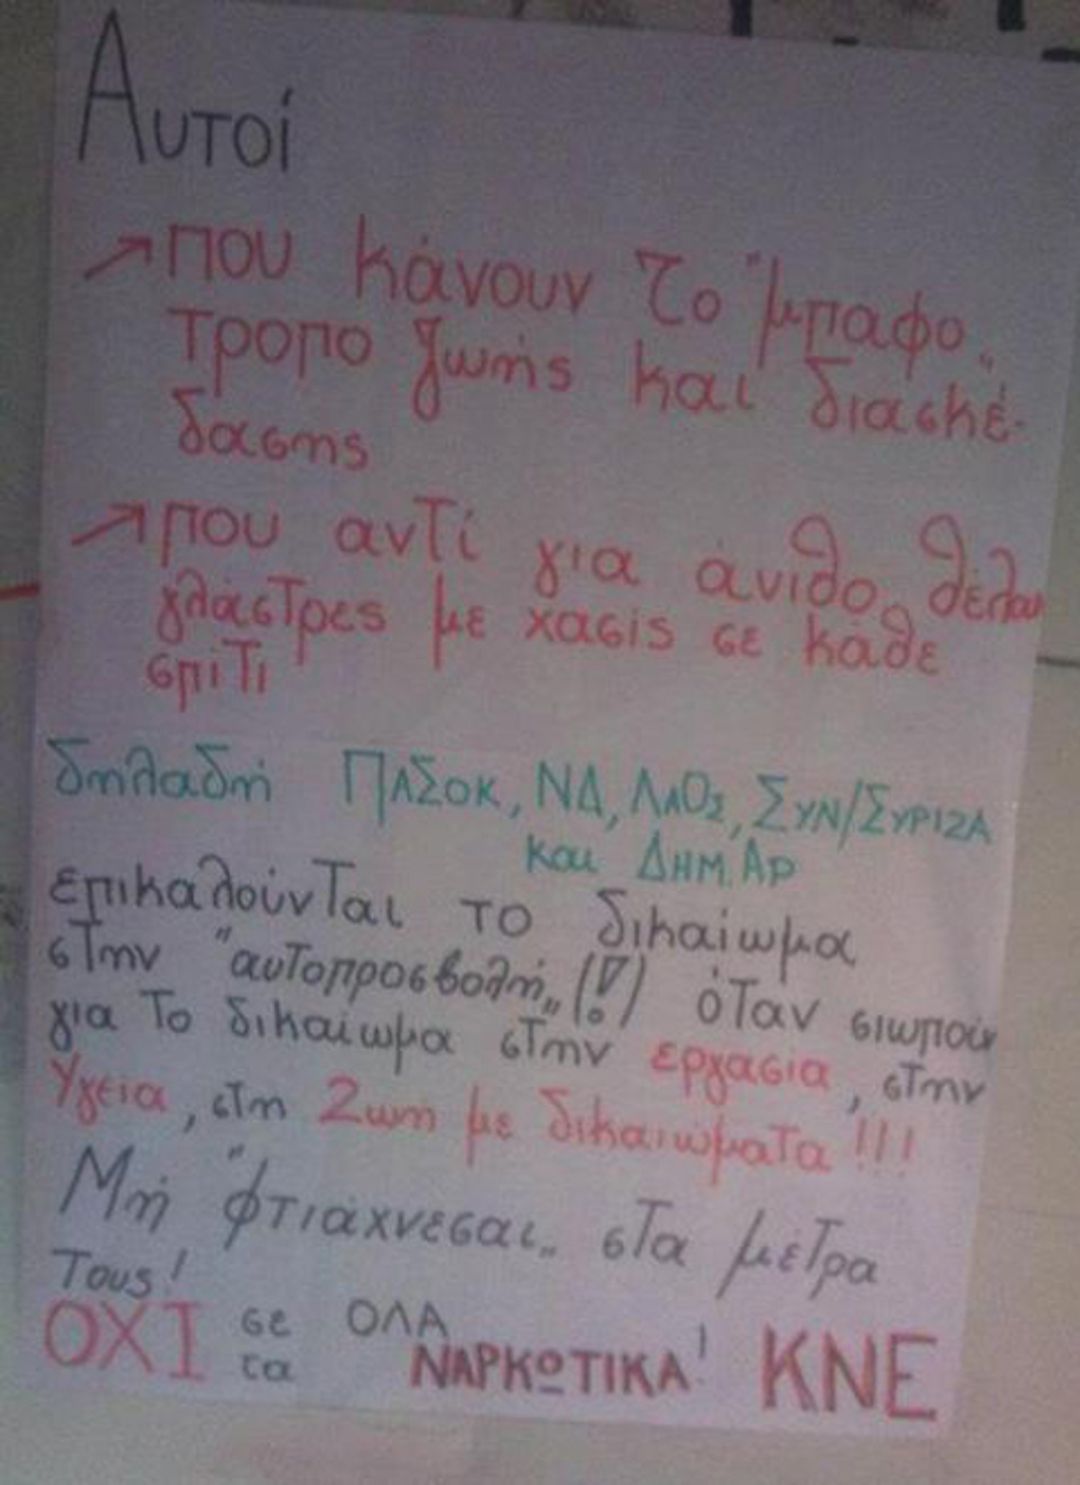 Αυτοί
↗ που κάνουν το "μπαφο„
τροπο ζωής και διασκέ-
δασης
↗ που αντί για άνιθο θέλουν
γλάστρες με χασίς σε κάθε
σπίτι
δηλαδή ΠΑΣΟΚ, ΝΔ, ΛΑΟΣ, ΣΥΝ/ΣΥΡΙΖΑ
και ΔΗΜ.ΑΡ
επικαλούνται το δικαίωμα
στην "αυτοπροσβολή„ (!) όταν σιωπούν
για το δικαίωμα στην εργασία, στην
Υγεία, στη Ζωη με δικαιώματα!!!
Μή "φτιάχνεσαι„ στα μέτρα
τους!
ΟΧΙ σε ΟΛΑ
τα ΝΑΡΚΩΤΙΚΑ! ΚΝΕ